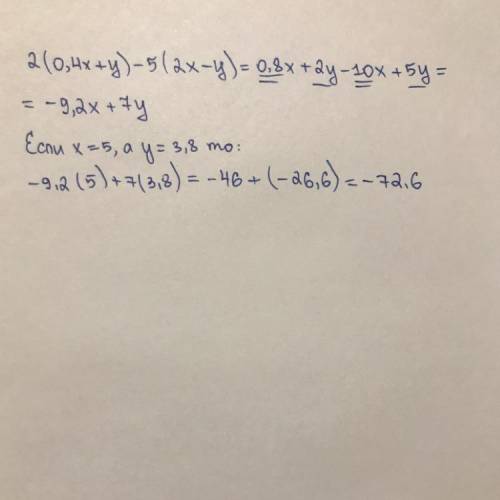 2(0,4x+y)-5(2x-y)=0,8x+2y-10x+5y=
=-9,2x+7y
Если x=5, а y=3,8 то:
-9,2(5)+7(3,8)=-46+(-26,6)=-72,6